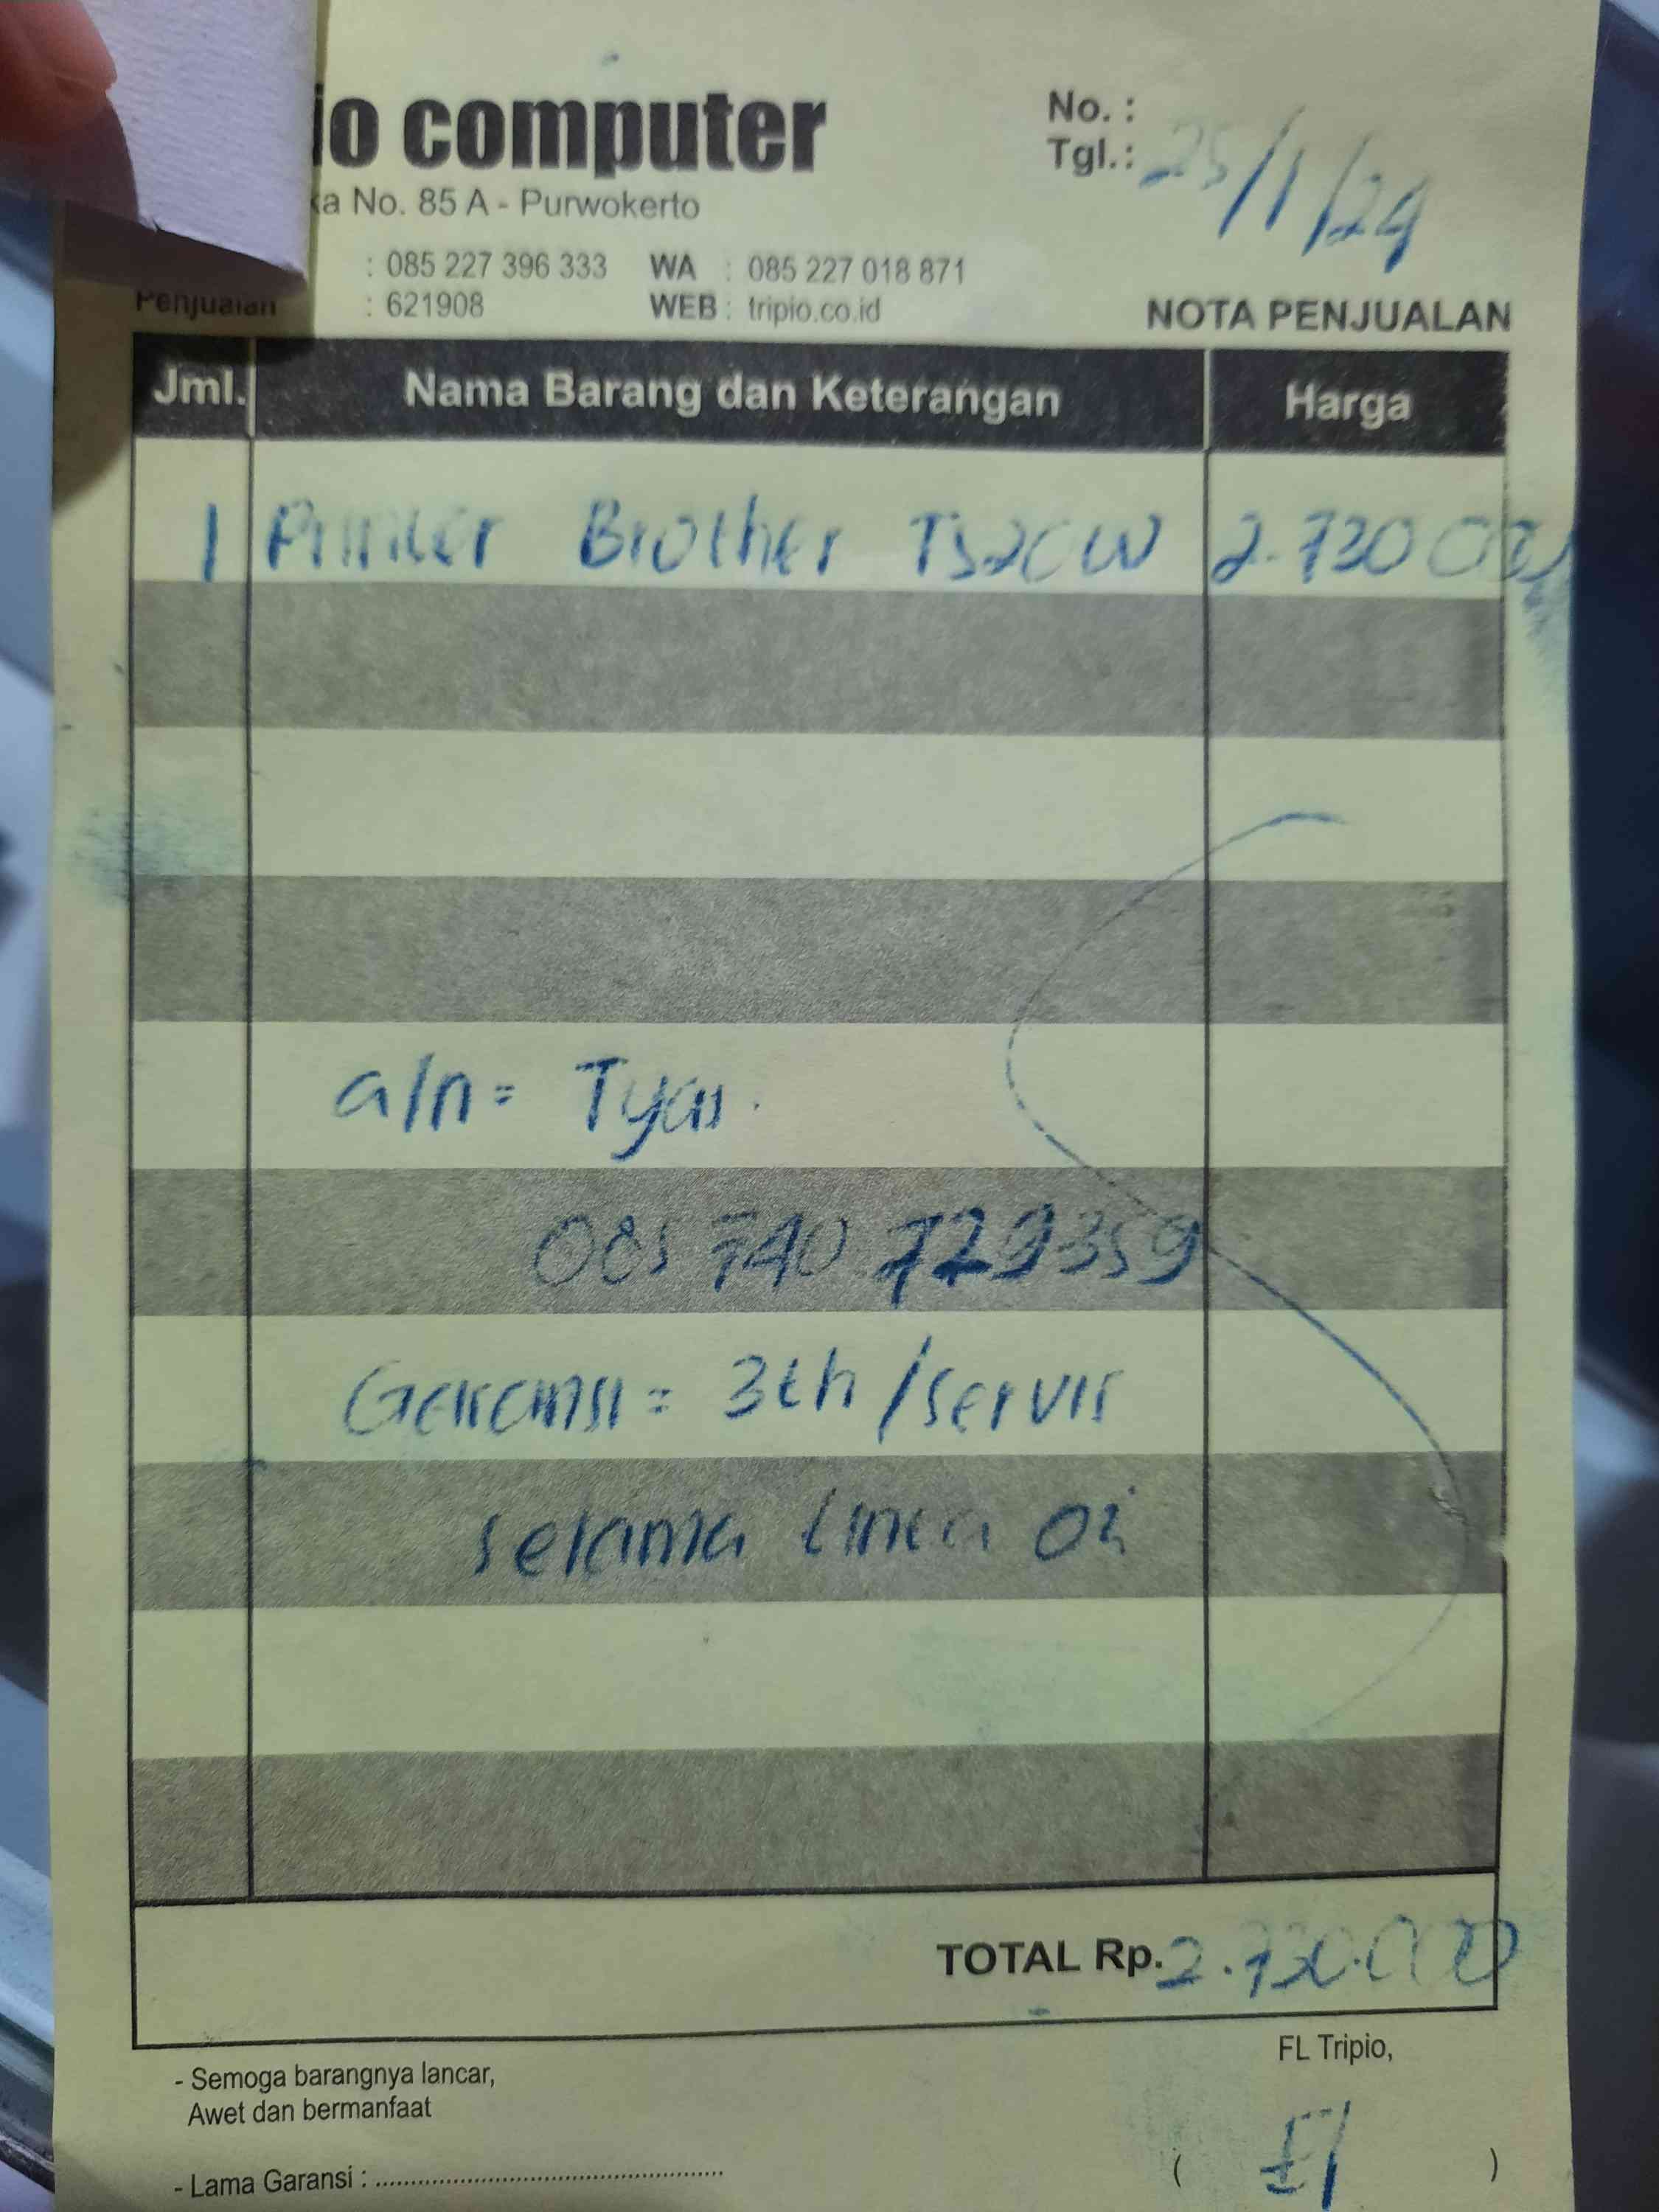 io computer
No. :
Tgl.: 25/1/24
ka No. 85 A - Purwokerto
: 085 227 396 333 WA : 085 227 018 871
Penjualan : 621908 WEB : tripio.co.id
NOTA PENJUALAN
Jml. Nama Barang dan Keterangan Harga
1 Printer Brother T520W 2.730.000
a/n = Tyas.
085 740 729359
Garansi = 3th / servis
selama tinta ori
TOTAL Rp. 2.730.000
FL Tripio,
- Semoga barangnya lancar,
Awet dan bermanfaat
- Lama Garansi : ......................................................
( )